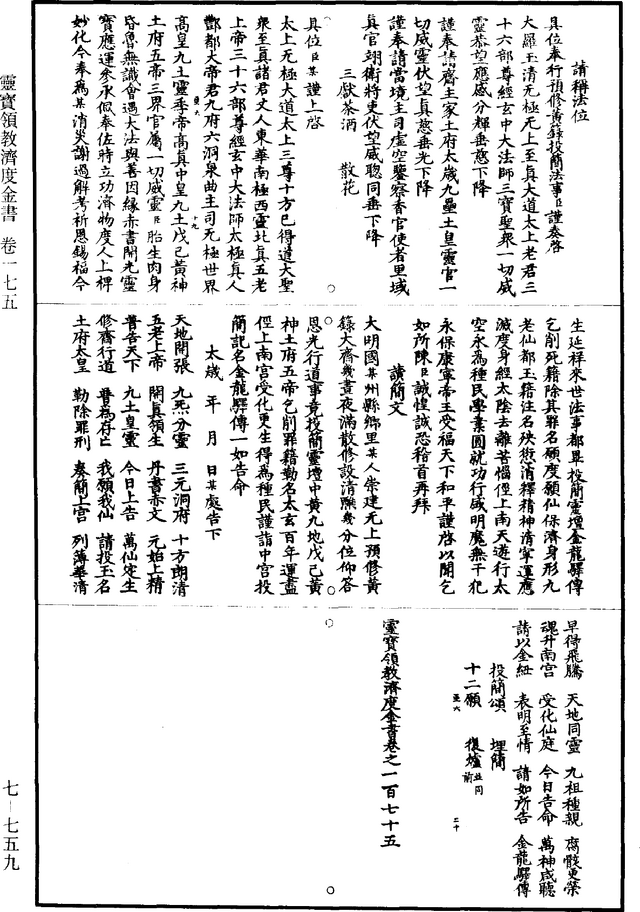 請稱法位
具位奉行預修黃籙投簡法事臣謹奏啓
大羅玉清无極无上至真大道太上老君三
十六部尊經玄中大法師三寶聖衆一切威
靈恭望應感分輝垂慈下降
謹奉請齋主家土府太歲九壘土皇靈官一
切威靈伏望真慈垂光下降
謹奉請當境土司虛空鑒察香官使者里域
真官翊衛將吏伏望威聰同垂下降
三獻茶酒 散花
具位臣某謹上啓
太上无極大道太上三尊十方已得道大聖
衆至真諸君丈人東華南極西靈北真五老
上帝三十六部尊經玄中大法師太極真人
酆都大帝君九府六洞泉曲主司无極世界
高皇九土靈垂帝高真中皇九土戊己黃神
土府五帝三界官屬一切威靈臣胎生肉身
昏魯無識會遇大法與善因緣赤書開光靈
寶應運參承佩奉佐時立功濟物度人上禆
妙化今奉爲某消災謝過解考祈恩錫福今
生延祥來世法事都畢投簡靈壇金龍驛傳
乞削死籍除其罪名願度願仙保濟身形九
老仙都玉籍注名殃愆消釋精神清寧運應
滅度身經太陰去離苦惱徑上南天遊行太
空永爲種民學業圓就功行咸明魔無干犯
永保康寧帝王受福天下和平謹啓以聞乞
如所陳臣誠惶誠恐稽首再拜
讀簡文
大明國某州縣鄉里某人崇建无上預修黃
籙大齋幾晝夜滿散修設清醮幾分位仰答
恩光行道事竟投簡靈壇中黃九地戊己黃
神土府五帝乞削罪籍勒名太玄百年運盡
徑上南宮受化更生得爲種民謹詣中宮投
簡記名金龍驛傳一如告命
太歲 年 月 日某處告下
天地開張 九炁分靈 三元洞府 十方朗清
五老上帝 開真領生 丹書赤文 元始上精
普告天下 九土皇靈 今日上告 萬仙定生
修齋行道 普爲存亡 我願我仙 請投玉名
土府太皇 勒除罪刑 奏簡上宮 列簿華清
早得飛騰 天地同靈 九祖種親 腐骸更榮
魂升南宮 受化仙庭 今日告命 萬神咸聽
請以金紐 表明至情 請如所告 金龍驛傳
投簡頌 埋簡
十二願 復爐並同前
靈寶領教濟度金書卷之一百七十五
靈寶領教濟度金書 卷一七五
七－七五九